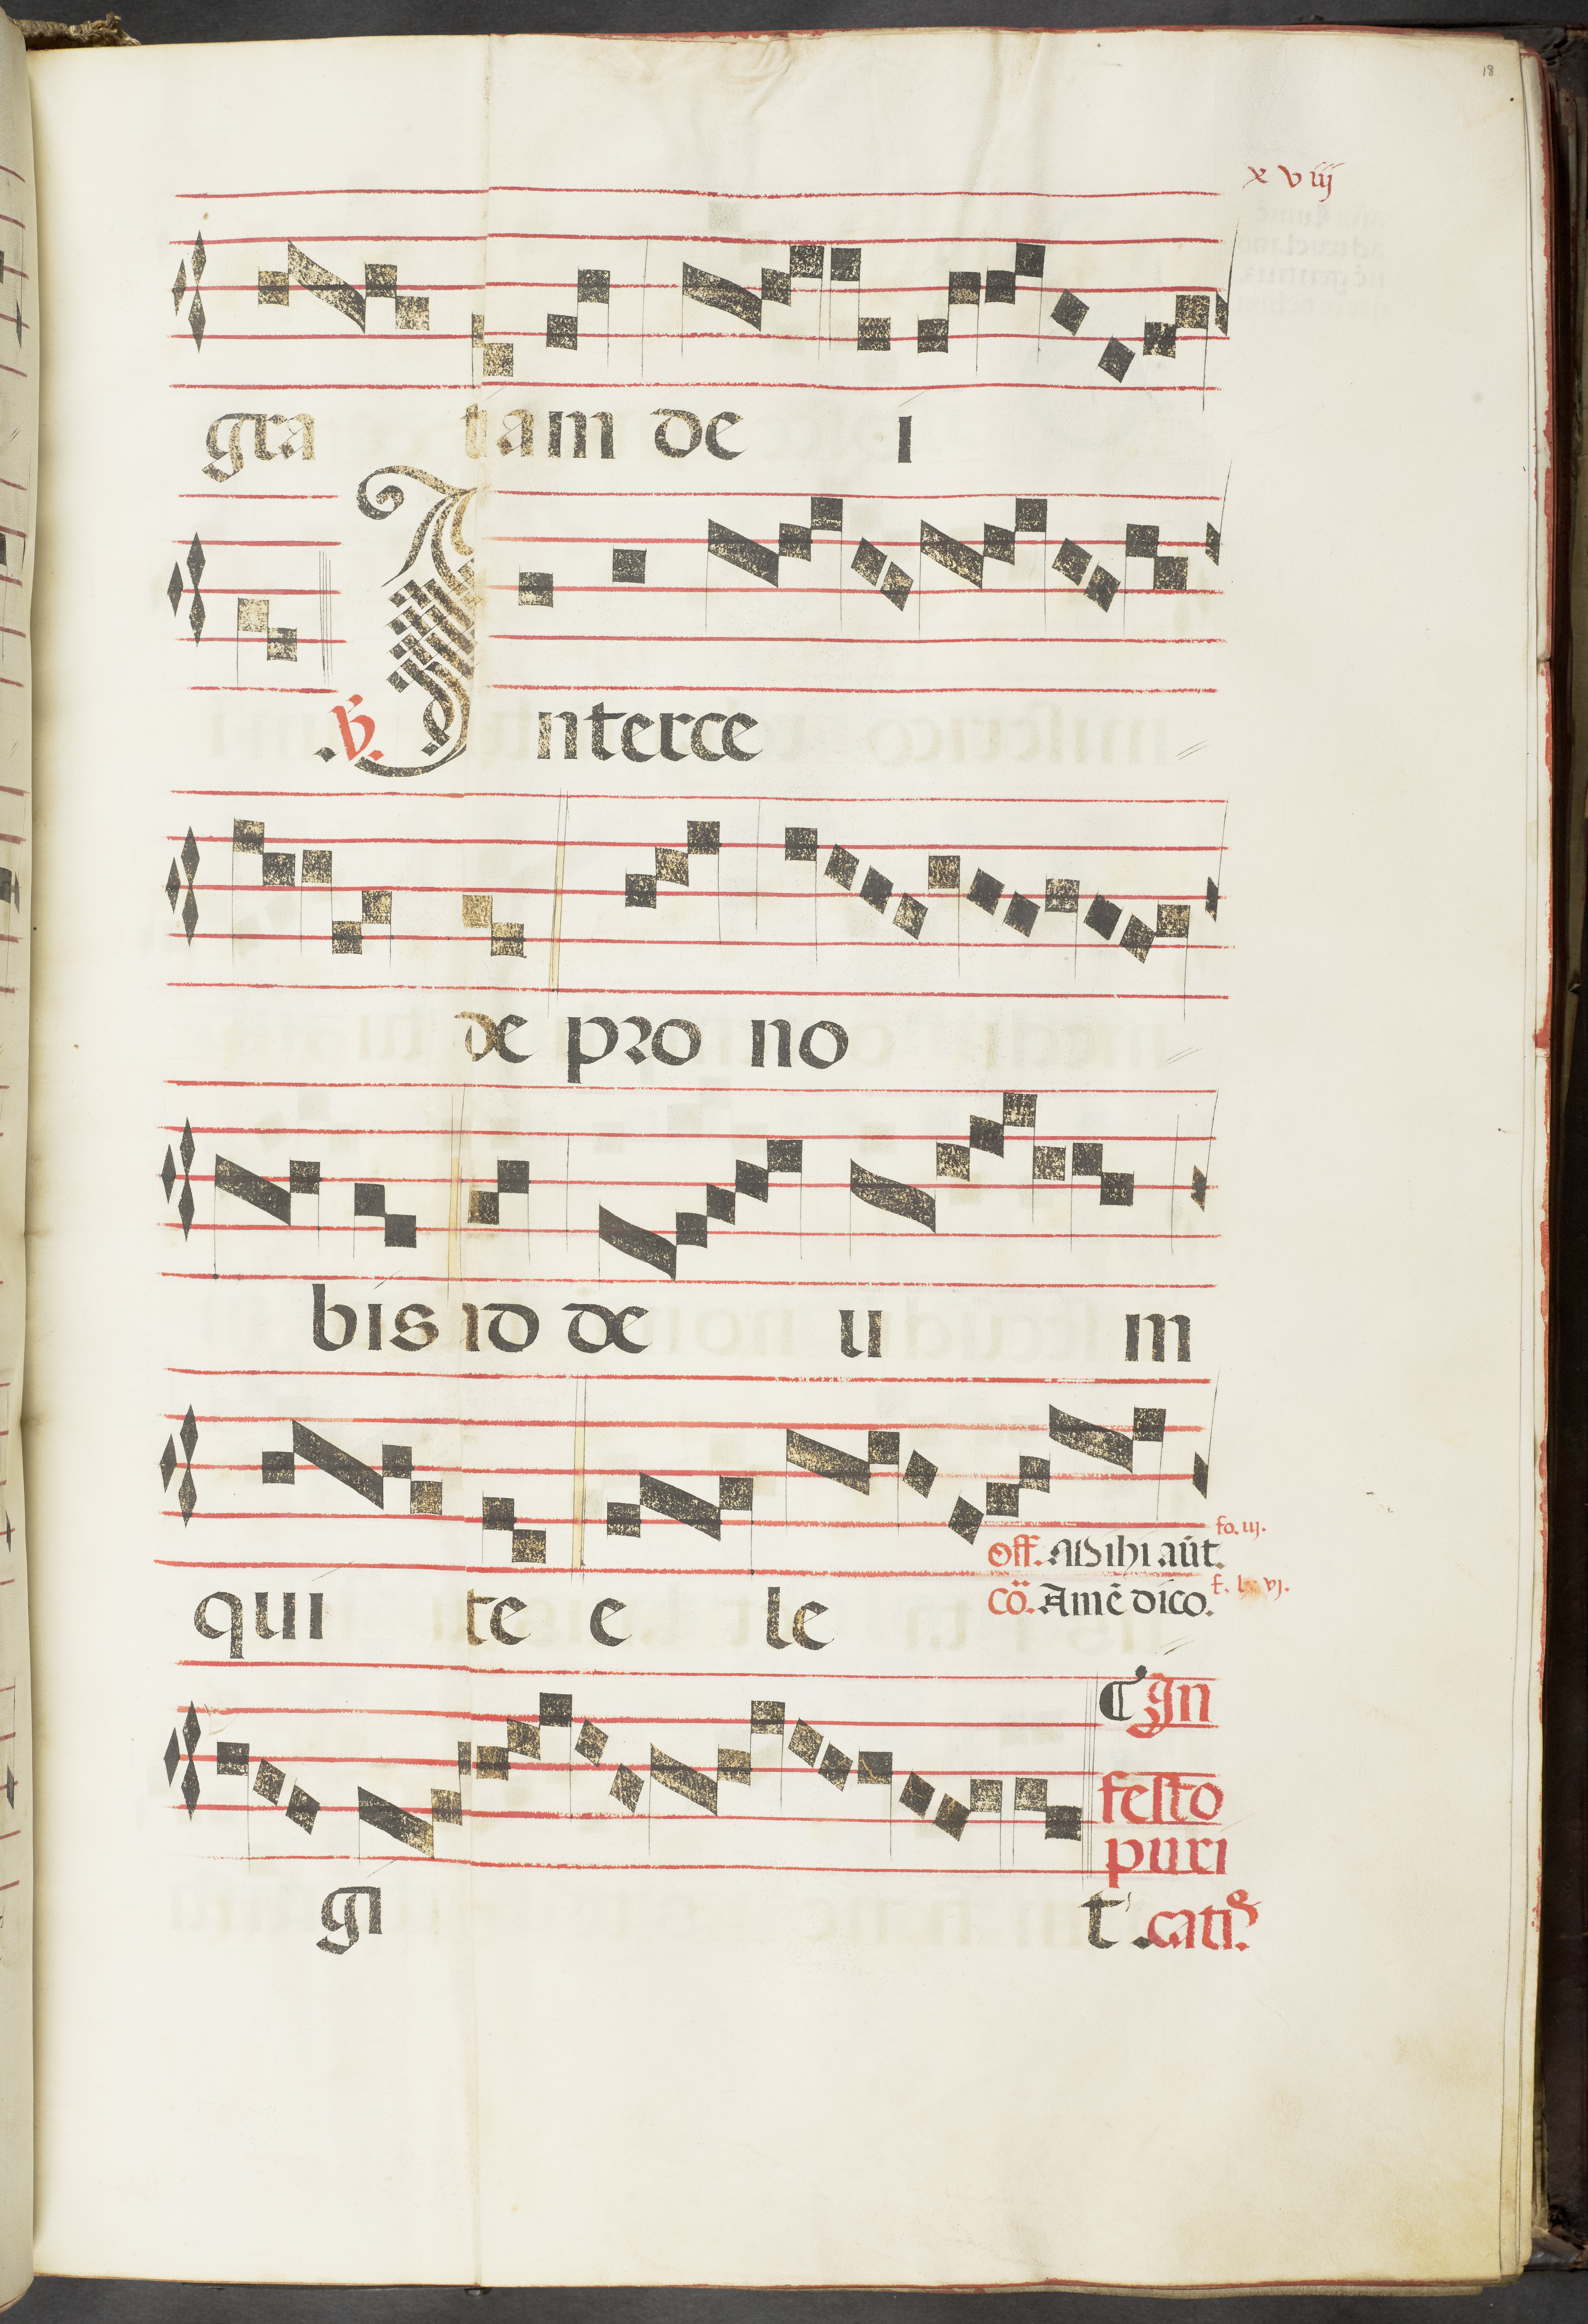 18
x viij
gra tiam de i
.℣. Interce
de pro no
bis id de u m
qui te e le
fo. iij.
Off. Mihi aūt.
Cō. Amē dico.
¶ In
festo
puri
gi t .catiōs.